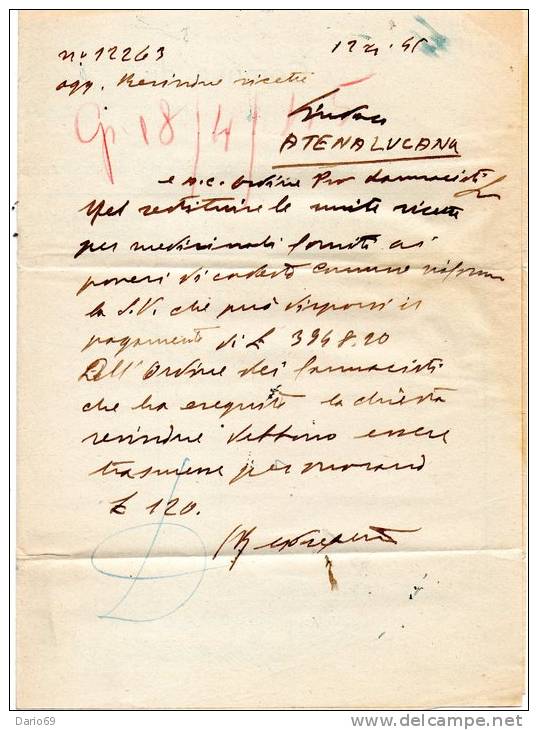 n° 12263
12 4 45
ogg. Revisione ricette
Gp. 18/4/45
Sindaco
ATENALUCANA
e p.c. Ordine Pro farmacisti
Nel restituire le unite ricette
per medicinali forniti ai
poveri di codesto comune informo
la S.V. che può disporsi il
pagamento di £ 3948.20
All'Ordine dei farmacisti
che ha eseguito la chiesta
revisione debbono essere
trasmesse per
£ 120.
Dario69
delcampe.net